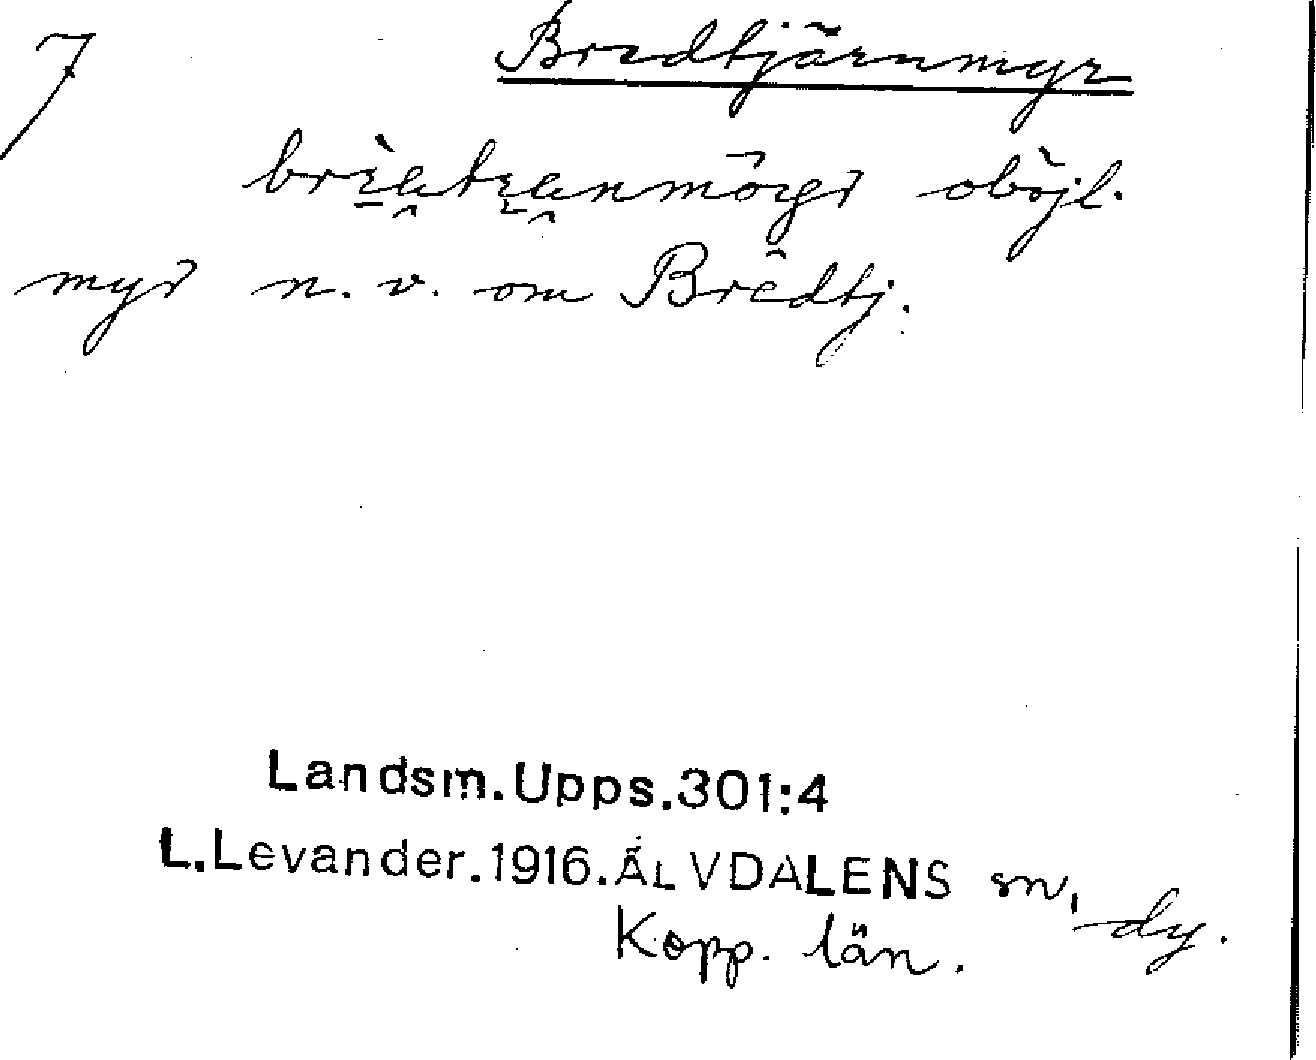 7 Bredtjärnmyr
oböjl.
myr n. v. om Bredtj.
Landsm.Upps.301:4
L.Levander.1916.ÄLVDALENS sn, dy.
Kopp. län.